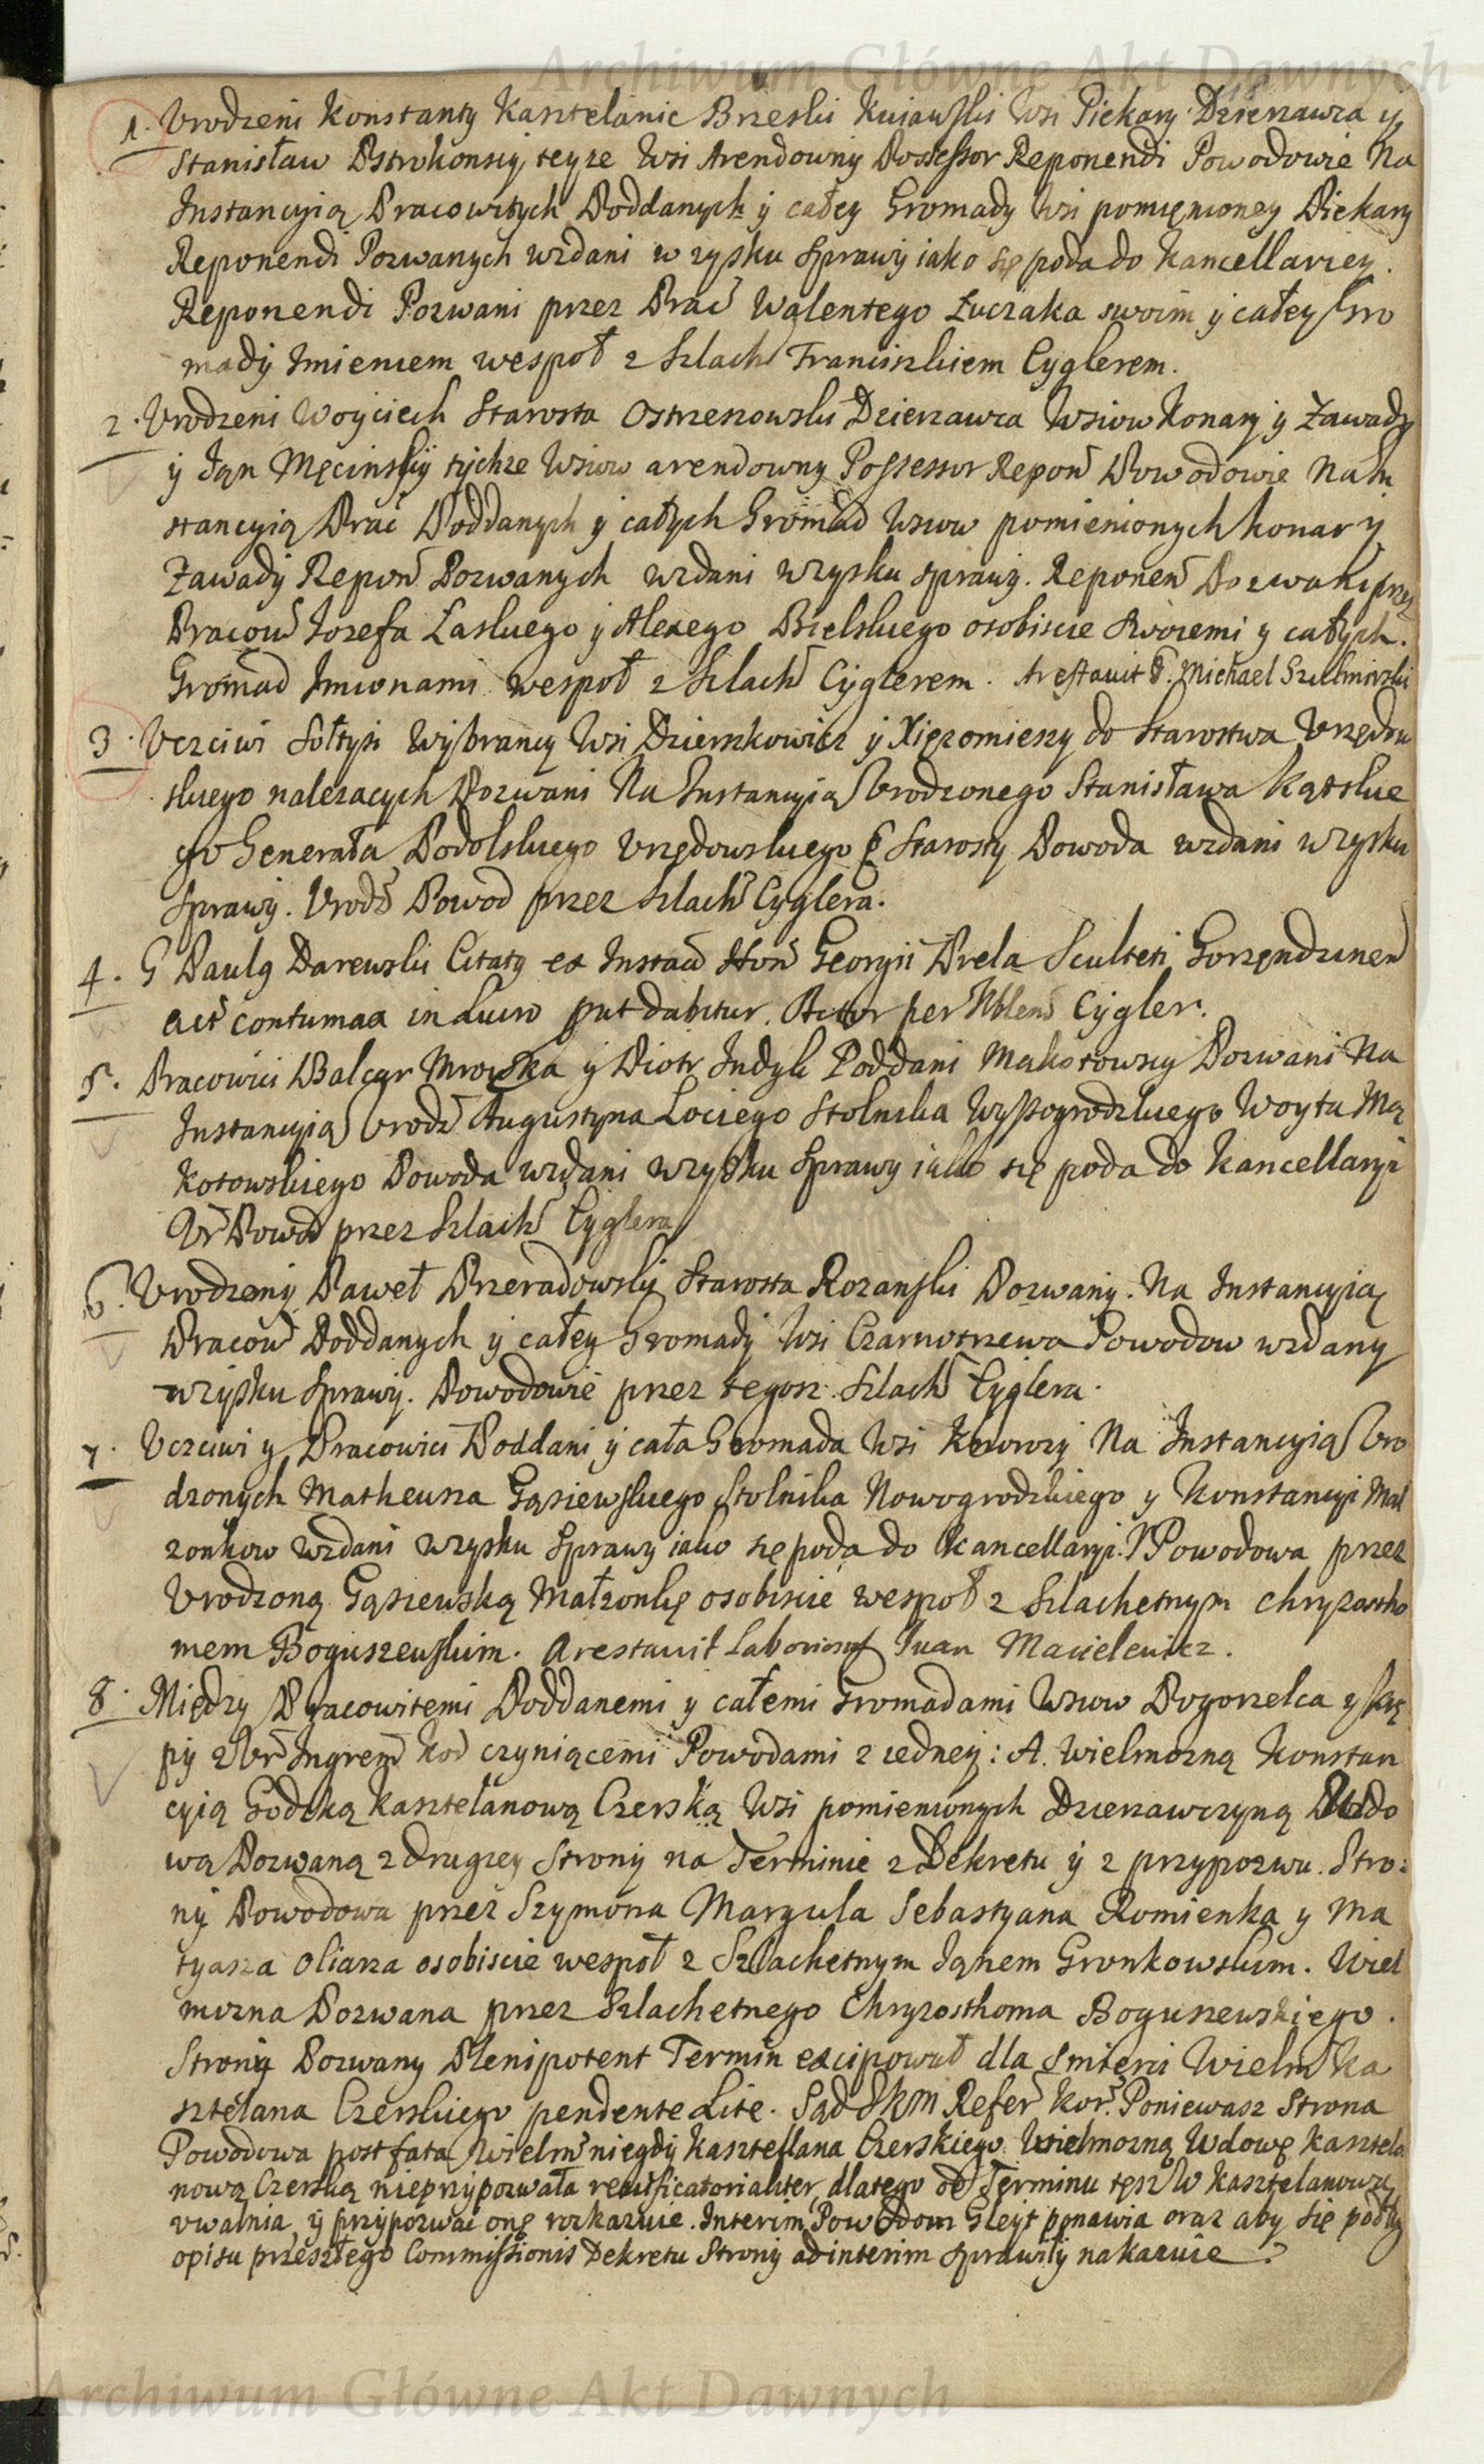 Archiwum Główne Akt Dawnych
1. Urodzeni Konstanty Kasztelanic Brzeski Kuiawski Wsi Piekary Dzierzawca y
Stanisław Ostrokonski teyze Wsi Arendowny Possessor Reponendi Powodowie Na
Instancyią Pracowitych Poddanych y całey Gromady Wsi pomięnioney Piekary
Reponendi Pozwanych wzdani w zysku sprawy iako się poda do Kancellaryey.
Reponendi Pozwani przez Prać Walentego Łuczaka swoim y całey Gro
mady Imieniem wespoł z Szlach Franciszkiem Cyglerem.
2. Urodzeni Woyciech Starosta Ostrzeszowski Dzierzawca Wsiow Konary y Zawady
y Jan Męcinsky tychze Wsiow arendowny Possessor Repoń Powodowie Na In
stancyią Prać Poddanych y całych Gromad Wsiow pomienionych Konar y
Zawady Repoń Pozwanych wzdani w zysku sprawy. Reponeń Pozwani przez
Pracow Jozefa Laskiego y Alexego Bielskiego osobiscie Swoiemi y całych
Gromad Imionami wespoł z Szlach Cyglerem. Arestavit G. Michael
3. Uczciwi Sołtysi Wybrancy Wsi Dzierzkowicz y Xięzomierzy do Starostwa Urzędow
skiego nalezacych Pozwani Na Instancyią Urodzonego Stanisława Kątskie
go Generała Podolskiego Urzędowskiego Starosty Powoda wzdani w zysku
sprawy. Urodz Powod przez Szlach Cyglera.
4. G Paulg Darewski Citatg ex Instań Hon Georgii Prela Sculteti
act contumax in Lucro put dabitur. Actor per Nblem Cygler.
5. Pracowici Balcer Mrowka y Piotr Indyk Poddani Makotowscy Pozwani Na
Instancyią Urodz Augustyna Lociego Stolnika Wyszogrodzkiego Woyta Ma
kotowskiego Powoda wzdani w zysku sprawy iako się poda do Kancellaryi
Ur Powod przez Szlach Cyglera
6. Urodzony Paweł Przeradowsky Starosta Rozanski Pozwany. Na Instancyią
Pracow Poddanych y całey Gromady Wsi Czarnotrzewa Powodow wzdany
w zysku sprawy. Powodowie przez tegosz Szlach Cyglera.
7. Uczciwi y Pracowici Poddani y cała Gromada Wsi Na Instancyią Uro
dzonych Matheusza Gąsiewskiego Stolnika Nowogrodzkiego y Konstancyi Mał
zonkow wzdani w zysku sprawy iako się poda do Kancellaryi. Powodowa przez
Urodzoną Gąsiewską Małzonkę osobiscie wespoł z Szlachetnym Chryzostho
mem Boguszewskim. Arestavit Laboriosg Iwan Macielewicz.
8. Między Pracowitemi Poddanemi y całemi Gromadami Wsiow Pogorzelca y Kę
py z Ur Ingrem Koń czyniącemi Powodami z iedney: A. Wielmozną Konstan
cyią Godzką Kasztelanową Czerską Wsi pomienionych Dzierzawczyną Wdo
wą Pozwaną z drugiey Strony na Terminie z Dekretu y z przypozwu. Stro:
ny Powodowa przez Szymona Marzula Sebastyana Romienka y Ma
tyasza Oliasza osobiscie wespoł z Szlachetnym Janem Gronkowskim. Wiel
mozna Pozwana przez Szlachetnego Chryzosthoma Boguszewskiego.
Strony Pozwany Plenipotent Termin excipował dla smierci Wielm Ka
sztelana Czerskiego pendente Lite. Sąd JKM Refer Kor. Poniewasz Strona
Powodowa post fata Wielm niegdy Kasztellana Czerskiego Wielmozną Wdowę Kasztela
nową Czerską nieprzypozwała reiusficatorialiter, dlatego od Terminu tęsz W Kasztelanowę
uwalnia, y przypozwać onę rozkazuie. Interim Powodom Gleyt ponawia oraz aby się podług
opisu przeszłego Commissionis Dekretu Strony ad interim sprawiły nakazuie.
Archiwum Główne Akt Dawnych